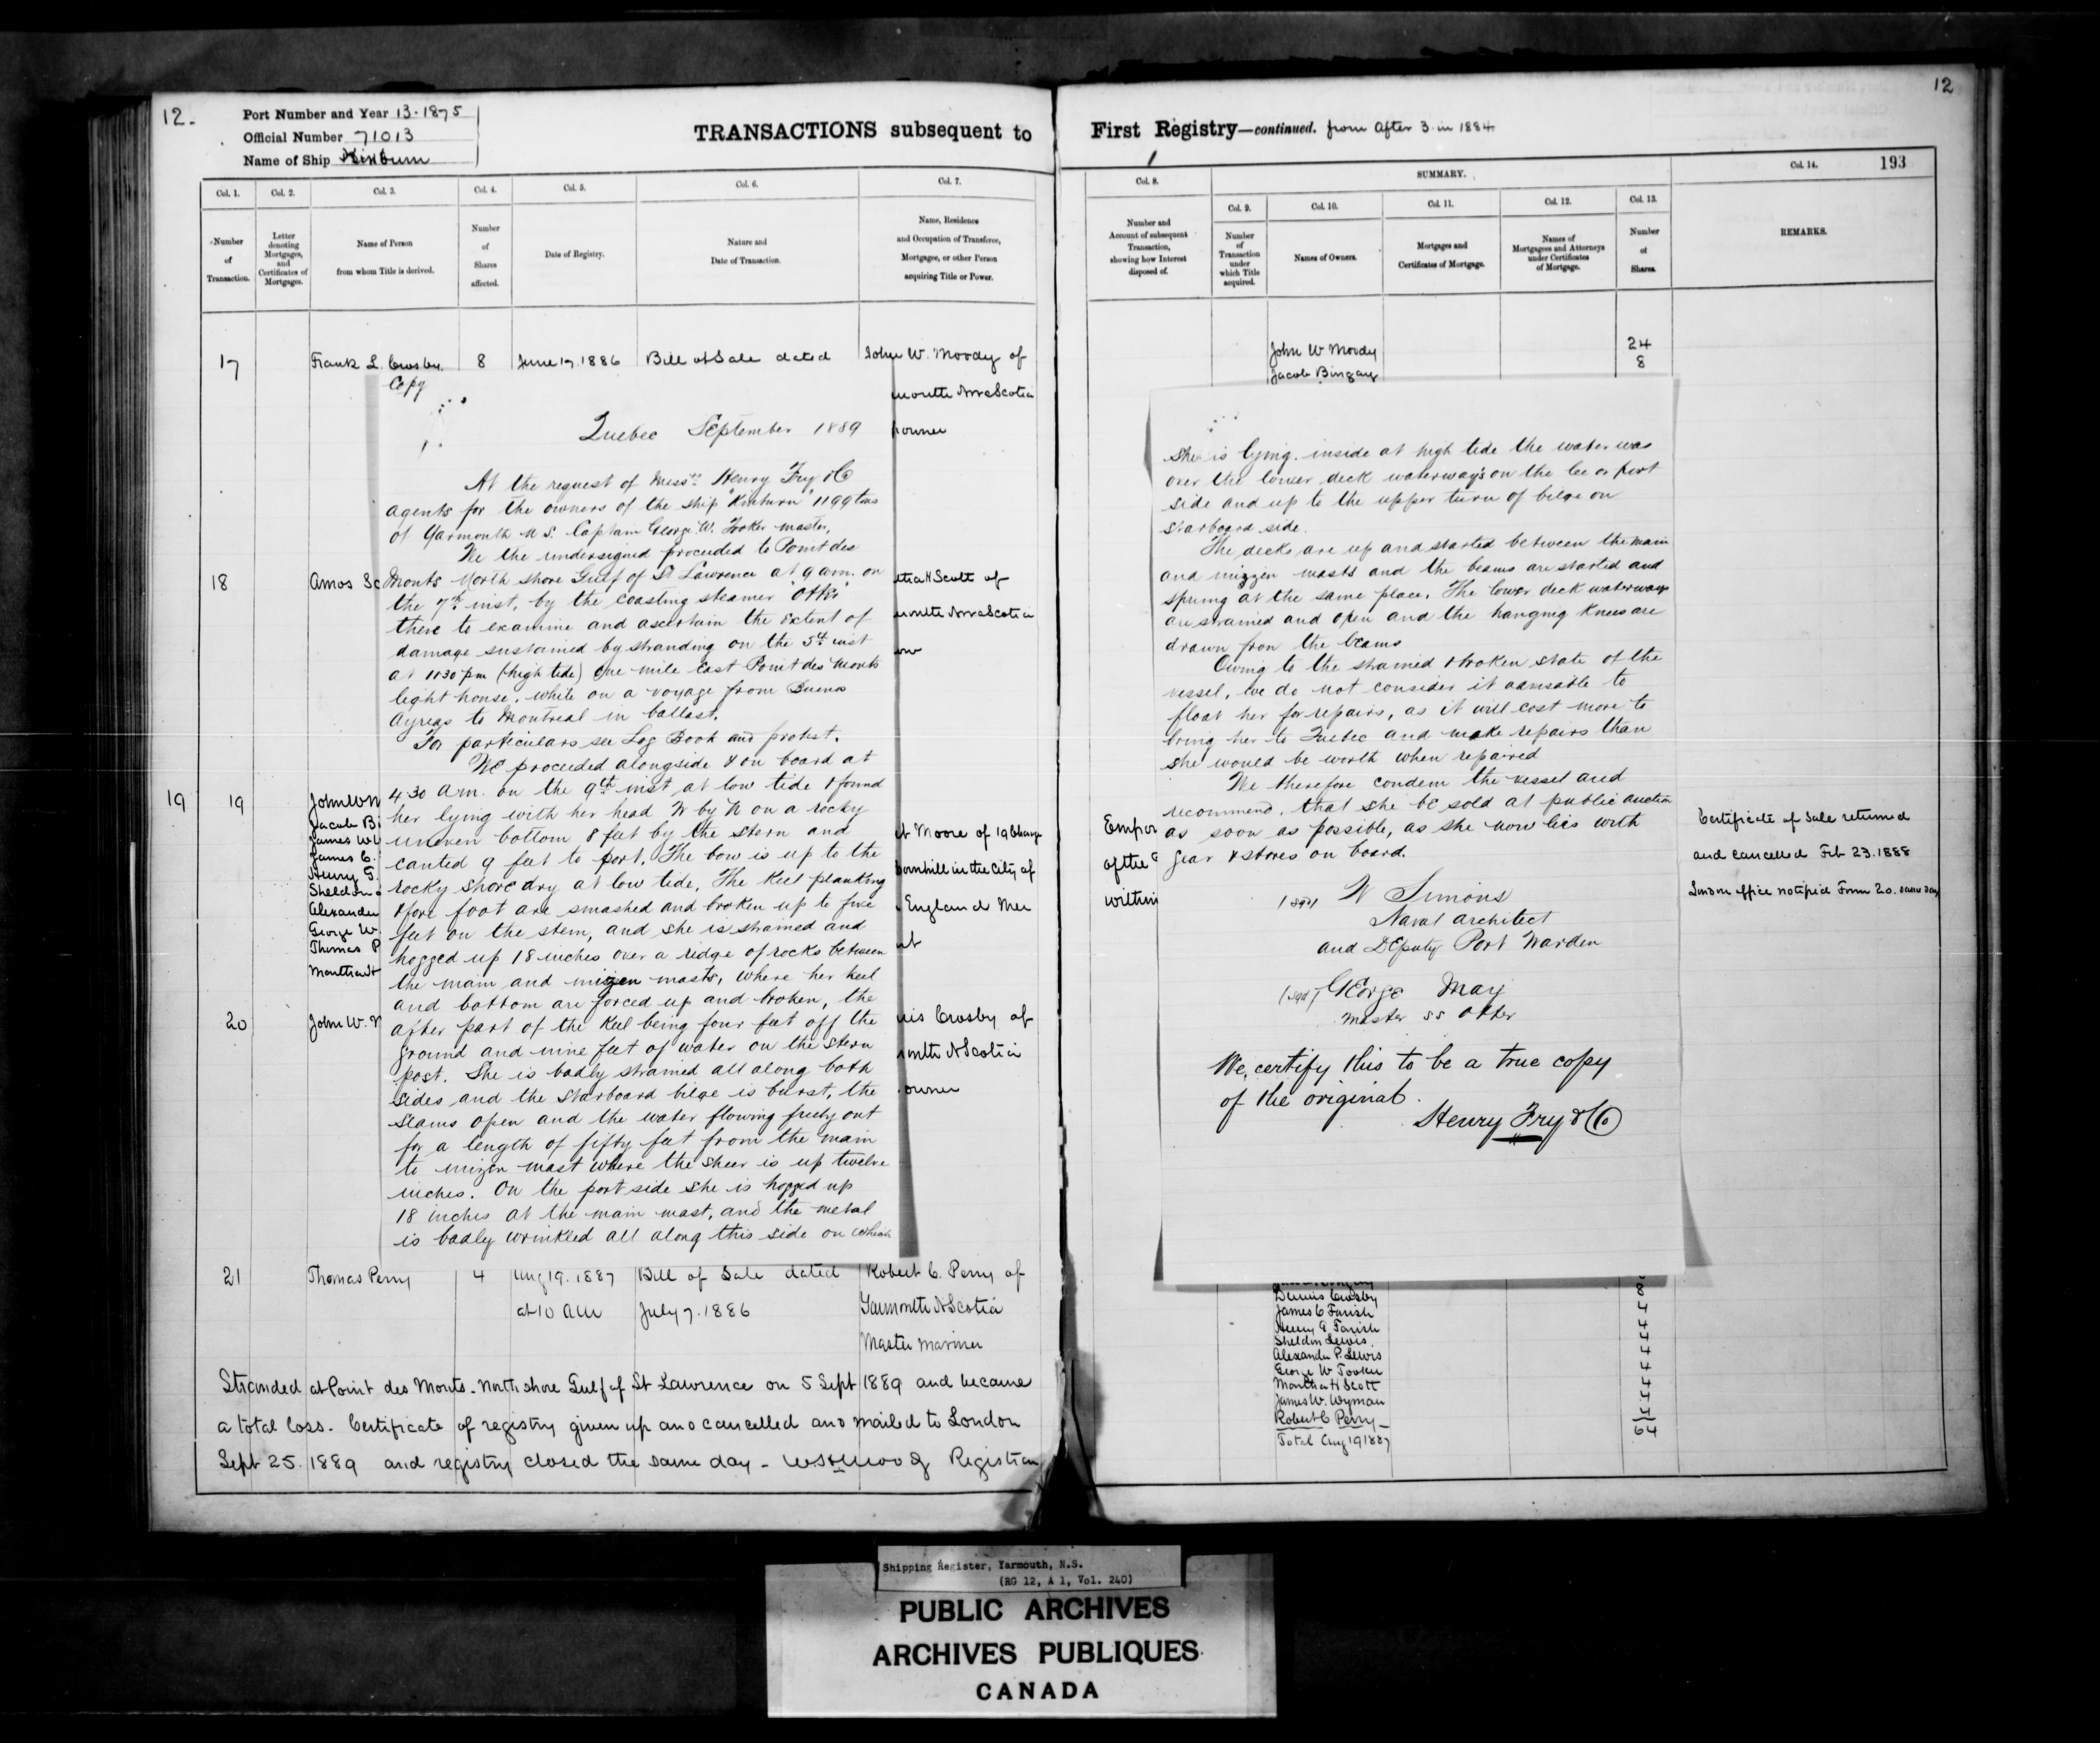 12.
Port Number and Year 13-1875
Official Number 71013
Name of Ship Kinburn
TRANSACTIONS subsequent to
Col. 1.
Col. 2.
Col. 3.
Col. 4.
Col. 5.
Col. 6.
Col. 7.
Number of Transaction.
Letter denoting Mortgages, and Certificates of Mortgages.
Name of Person from whom Title is derived.
Number of Shares affected.
Date of Registry.
Nature and Date of Transaction.
Name, Residence and Occupation of Transferee, Mortgagee, or other Person acquiring Title or Power.
17 Frank L. Crosby. 8 June 17. 1886 Bill of Sale dated John W. Moody of
mouth Nova Scotia
owner
Copy
Quebec September 1889
At the request of Messrs Henry Fry & Co
agents for the owners of the ship "Kinburn" 1199 tons
of Yarmouth N S. Captain George W. Tooker master,
We the undersigned proceeded to Point des
Monts North shore Gulf of St Lawrence at 9 am. on
the 7th inst, by the coasting steamer "Otter"
there to examine and ascertain the extent of
damage sustained by stranding on the 5th inst
at 1130 pm (high tide) one mile East Point des Monts
light house, while on a voyage from Buenos
Ayreas to Montreal in ballast.
For particulars see Log Book and protest.
We proceeded alongside & on board at
4 30 am. on the 9th inst at low tide & found
her lying with her head N by N on a rocky
uneven bottom 8 feet by the stern and
canted 9 feet to port. The bow is up to the
rocky shore dry at low tide, The keel planking
& fore foot are smashed and broken up to five
feet on the stem, and she is strained and
hogged up 18 inches over a ridge of rocks between
the main and mizen masts, where her keel
and bottom are forced up and broken, the
after part of the keel being four feet off the
ground and nine feet of water on the stern
post. She is badly strained all along both
sides and the starboard bilge is burst, the
seams open and the water flowing freely out
for a length of fifty feet from the main
to mizen mast where the sheer is up twelve
inches. On the port side she is hogged up
18 inches at the main mast, and the metal
is badly wrinkled all along this side on which
18 Amos Sc
Scott of
mouth Nova Scotia
19 19 John W M
Jacob Bi
James W W
James C.
Henry G.
Sheldon
Alexander
George W.
Thomas P
Martha H
Moore of 19 Change
Cornhill in the City of
England Mer
nt
20 John W. M
nis Crosby of
mouth N Scotia
owner
21 Thomas Perry 4 Aug 19. 1887 Bill of Sale dated Robert C. Perry of
at 10 AM July 7. 1886 Yarmouth N Scotia
Master Mariner
Stranded at Point des Monts - North shore Gulf of St Lawrence on 5 Sept 1889 and became
a total loss - Certificate of registry given up and cancelled and mailed to London
Sept 25. 1889 and registry closed the same day - Registrar
12
First Registry—continued. from After 3 in 1884
193
Col. 8.
SUMMARY.
Col. 9.
Col. 10.
Col. 11.
Col. 12.
Col. 13.
Col. 14.
Number and Account of subsequent Transaction, showing how Interest disposed of.
Number of Transaction under which Title acquired.
Names of Owners.
Mortgages and Certificates of Mortgage.
Names of Mortgagees and Attorneys under Certificates of Mortgage.
Number of Shares.
REMARKS.
John W Moody 24
Jacob Bingay 8
she is lying. inside at high tide the water was
over the lower deck waterways on the lee or port
side and up to the upper turn of bilge on
starboard side.
The decks are up and started between the main
and mizzen masts and the beams are started and
sprung at the same place. The lower deck waterways
are strained and open and the hanging knees are
drawn from the beams
Owing to the strained & broken state of the
vessel, we do not consider it advisable to
float her for repairs, as it will cost more to
bring her to Quebec and make repairs than
she would be worth when repaired
We therefore condem the vessel and
recommend, that she be sold at public auction
as soon as possible, as she now lies with
gear & stores on board.
(sgd) W Simons
Naval Architect
and Deputy Port Warden
(sgd) George May
Master SS Otter
We, certify this to be a true copy
of the original.
Henry Fry & Co
Empor
of the
within
Certificate of Sale returned
and cancelled Feb 23. 1888
London office notified Form 20. same day
Dennis Crosby 8
James C Farish 4
Henry G Farish 4
Sheldon Lewis 4
Alexander P. Lewis 4
George W Tooker 4
Martha H Scott 4
James W. Wyman 4
Robert C Perry 4
64
Total Aug 19 1887
Shipping Register, Yarmouth, N.S.
(RG 12, A 1, Vol. 240)
PUBLIC ARCHIVES
ARCHIVES PUBLIQUES
CANADA